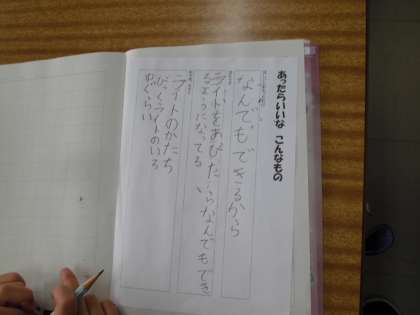 あったらいいな こんなもの
なんでもできるから
ライトをあびたらなんでもでき
るようになってる
ライトのかたち
びっくライトのいろ